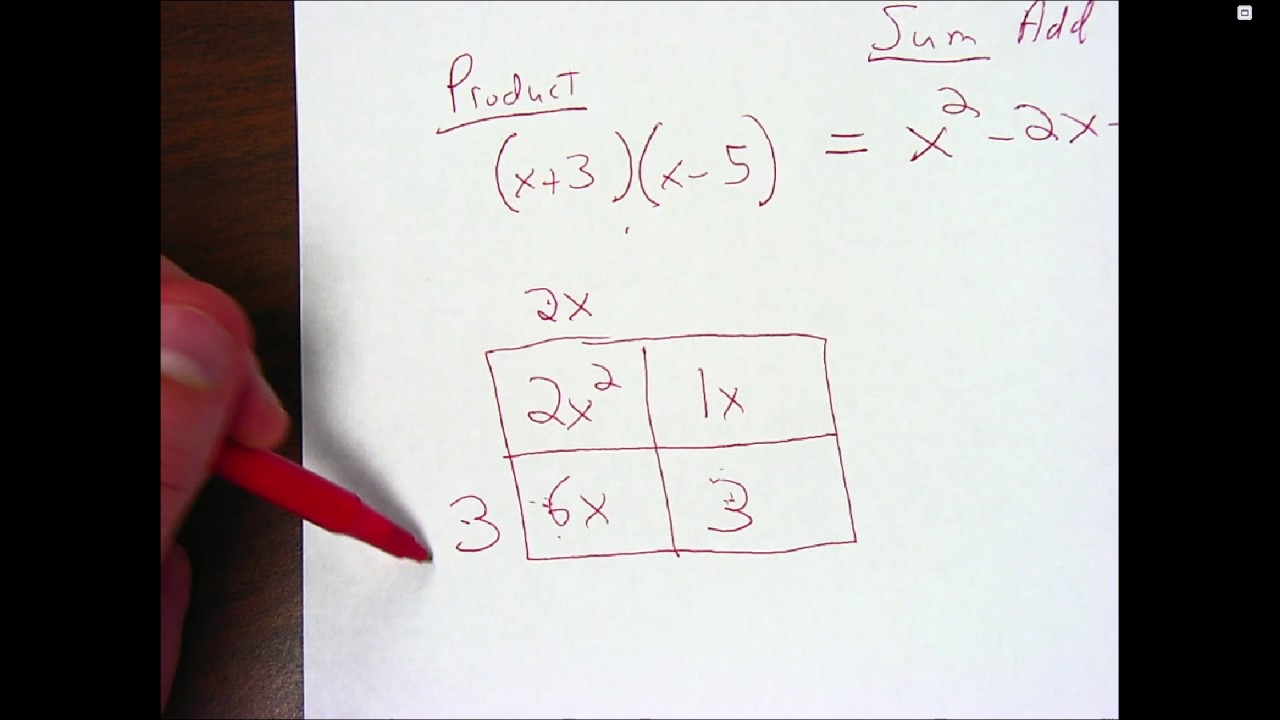 Sum Add
Product
(x+3)(x-5) = x² -2x-
2x
2x² 1x
3 6x 3